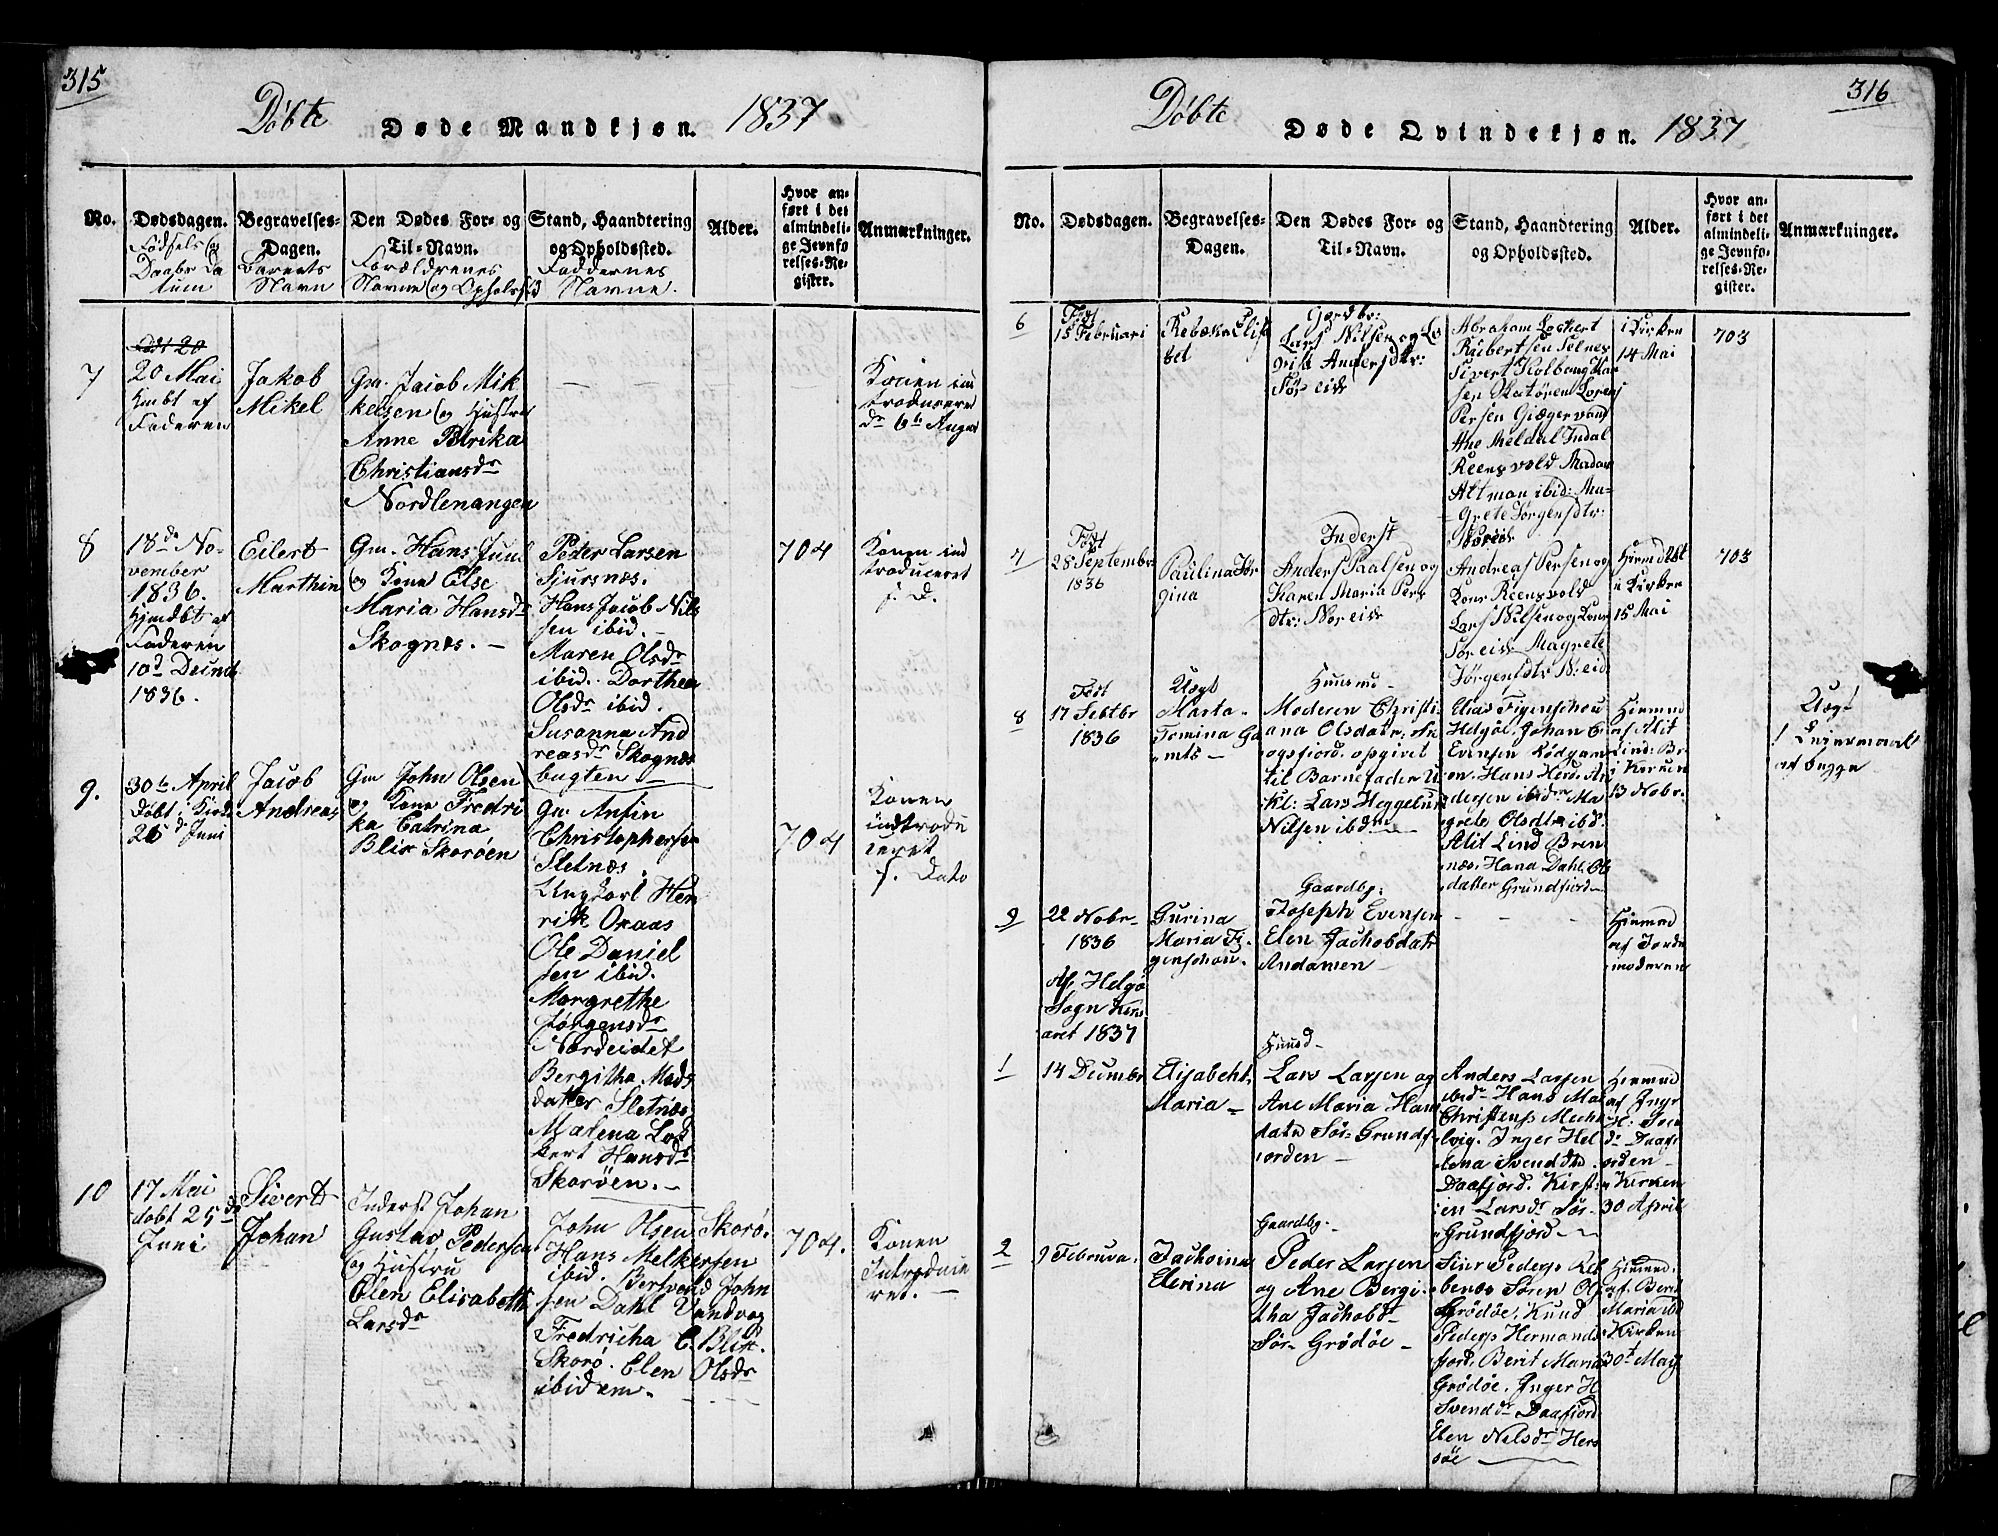 315
Døbte
Døde Mandkjøn.
1837
No.
Dødsdagen.
Fødsels og
Daabs Da
tum
Begravelses-
Dagen.
Barnets
Navn
Den Dødes For- og
Til-Navn.
Forældrenes
Navne og Opholsst
Stand, Haandtering
og Opholdssted.
Faddernes
Navne.
Alder.
Hvor an-
ført i det
almindeli-
ge Jevnfø
relses-Re-
gister.
Anmærkninger.
7
Født 20
20 Mai
hmbt af
Faderen
Jakob
Mikel
Gm. Jacob Mik
kelsen og Hustru
Anne Petrika
Christiansdr
Nordlenangen
Konen in
troducere
8
18de No-
vember
1836.
Hjmdbt af
Faderen
10d Decmb
1836.
Eilert
Marthin
Gm. Hans Juul
og Kone Else
Maria Hansdr
Skognæs. -
Peder Larsen
Sjursnæs.
Hans Jacob Nils
sen ibid.
Maren Olsdr
ibid. Dorthea
Olsdr ibid.
Susanna And
reasdr Skognæs
bugten
704
Konen ind
troduceret
s. D.
9.
30te April
døbt i Kirk
25d Juni
Jacob
Andreas
Gm John Olsen
og Kone Fredri
ka Catrina
Blix Skorøen
Gm. Anfin
Christophersen
Sletnæs.
Ungkarl Hen
rik Oraas
Ole Daniel
sen ibid.
Margrethe
Jørgensdr
Nordeidet
Bergitha Mads
datter Sletnæs
Malena Lok
kert Hansdr
Skorøen.
704
Konen
indtrodu
ceret
s. Dato
10
17 Mai
døbt 25de
Juni
Sivert
Johan
Inderst Johan
Gustav Pedersen
og Hustru
Elen Elisabeth
Larsdr
John Olsen Skorø.
Hans Melkersen
ibid. Bersvend John
sen Dahl Vandvag
Fredricha C. Blix.
Skorø. Elen Olsdr
ibidem.
704.
Konen
Introduce
ret.
316
Døbte
Døde Qvindekjøn.
1837
No.
Dødsdagen.
Begravelses-
Dagen.
Den Dødes For- og
Til-Navn.
Stand, Haandtering
og Opholdssted.
Alder.
Hvor an-
ført i det
almindeli-
ge Jevnfø-
relses-Re-
gister.
Anmærkninger.
6
Født
15 Februari
Rebækka Elisa
bet
Gjordbr:
Lars Nilsen og Lo
vise Andersdtr:
Sør eid
Abraham Lockert
Rubertsen Selnes
Sivert Kolbang Han
sen Skatøren Lorens
Persen Giægervand
Ane Meldal Indal
Reensvold Madam
Altman ibid: Ma-
Grete Jørgensdtr:
Noreid
i Kirken
14 Mai
703
7
Født
28 September
1836
Paulina Jør
gina
Inderst
Anders Paalsen og
Karen Maria Pers
dtr: Nor eid
Andreas Persen og
Kone Reensvold
Lars Nilsen og Kone
Sør eid Magrete
Jørgensdtr N: eid
Hiemdøbt
i Kirken
15 Mai
703
8
Født
17 Sebtbr
1836
Uægt
Marta
Tomina Ga
Huusmd
Moderen Christi-
ana Olsdatr: An
gsfjord. opgivet
til Barnefader U
Kl: Lars Heggelund
Nilsen ibdm
Elias Figenschou
Helgøe, Johan E
Evensen Rødgam
en. Hans Hend. An
dersen ibidm Ma
grete Olsdtr ibd.
Alit Lind Bren
næs. Hana Dahl. Ols
datter Grundfjord
Hiemd
af Alit
Lind: Br
i Kirken
13 Nobr.
Uægt
1 Leiermaal
af begge
9
22 Nobr
1836
Gurina
Maria Fi
genschou.
Gaardbg:
Joseph Evensen
Elen Jachobdatr
Andamen
Hiemd
af Jorde
moderen
Af Helgø
Sogn Kirk
aaret 1837
1
14 Decmbr
Elisabeht
Maria
Huusd
Lars Larsen og
Ane Maria Han
datr Sør Grundf
iorden
Anders Larsen
ibid. Hans Ma
Christens Mecht
lvig. Inger Hel
lena Svendtr
Daafjord. Kirst
in Larsdr Sør
Grundfjord
Hiemd
af Inge
H: Sven
dr Daafi
orden
i Kirken
30 April
2
9 Februar.
Jachoina
Elerina
Gaardbg.
Peder Larsen
og Ane Bergi-
tha Jachobd
Sør Grødøe
Siur Peders Reb
benæs Søren Ols
Grødøe. Knud
Peders Hermands
fjord. Berit Maria
Grødøe. Inger H
Svenddr Daafjord
Elen Nilsdr Hers
søe
Hiemd.
af. Berit
Maria ibd
Kirken
30t May